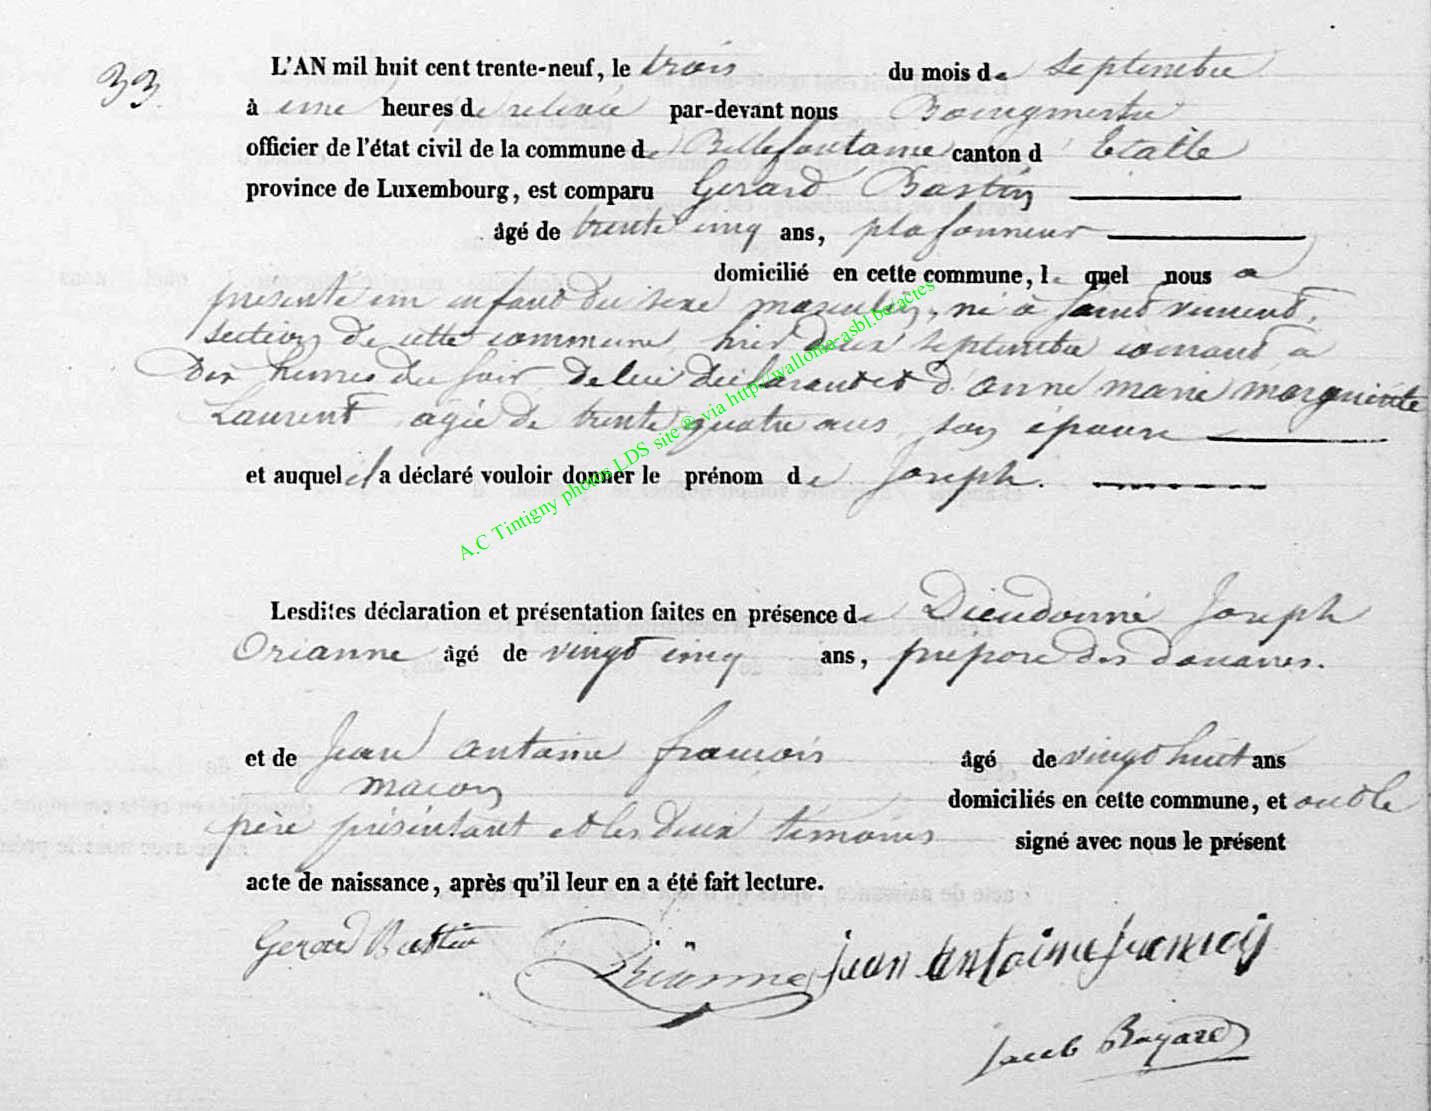 33
L'AN mil huit cent trente-neuf, le trois du mois de Septembre
à une heures de relevée par-devant nous Bourgmestre
officier de l'état civil de la commune de Bellefontaine canton d'Etalle
province de Luxembourg, est comparu Gerard Bastin
âgé de trente cinq ans, plafonneur
domicilié en cette commune, le quel nous a
présenté un enfant du sexe masculin, né à Saint vincent,
section de cette commune, hier deux septembre courant à
Dix heures du soir, de lui déclarant et d'anne marie marguerite
Laurent agée de trente quatre ans, son épouse
et auquel il a déclaré vouloir donner le prénom de Joseph.
A.C Tintigny photos LDS site @ via http://wallonia-asbl.be/actes
Lesdites déclaration et présentation faites en présence de Dieudonné Joseph
Orianne âgé de vingt cinq ans, préposé des douanes.
et de Jean antoine francois âgé de vingt huit ans
macon domiciliés en cette commune, et ont le
père présentant et les deux temoins signé avec nous le présent
acte de naissance, après qu'il leur en a été fait lecture.
Gerard Bastin Orianne jean antoine francois
Jacob Bayard